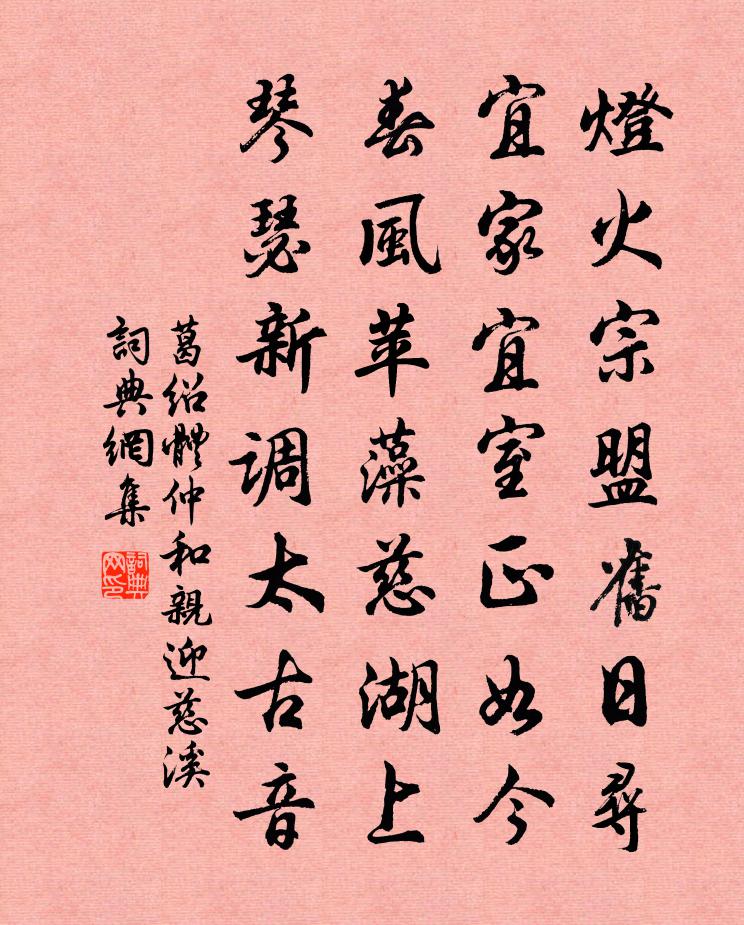 燈火宗盟舊日尋
宜家宜室正如今
春風苹藻慈湖上
琴瑟新调太古音
葛紹體仲和親迎慈溪
詞典網集
詞典网印